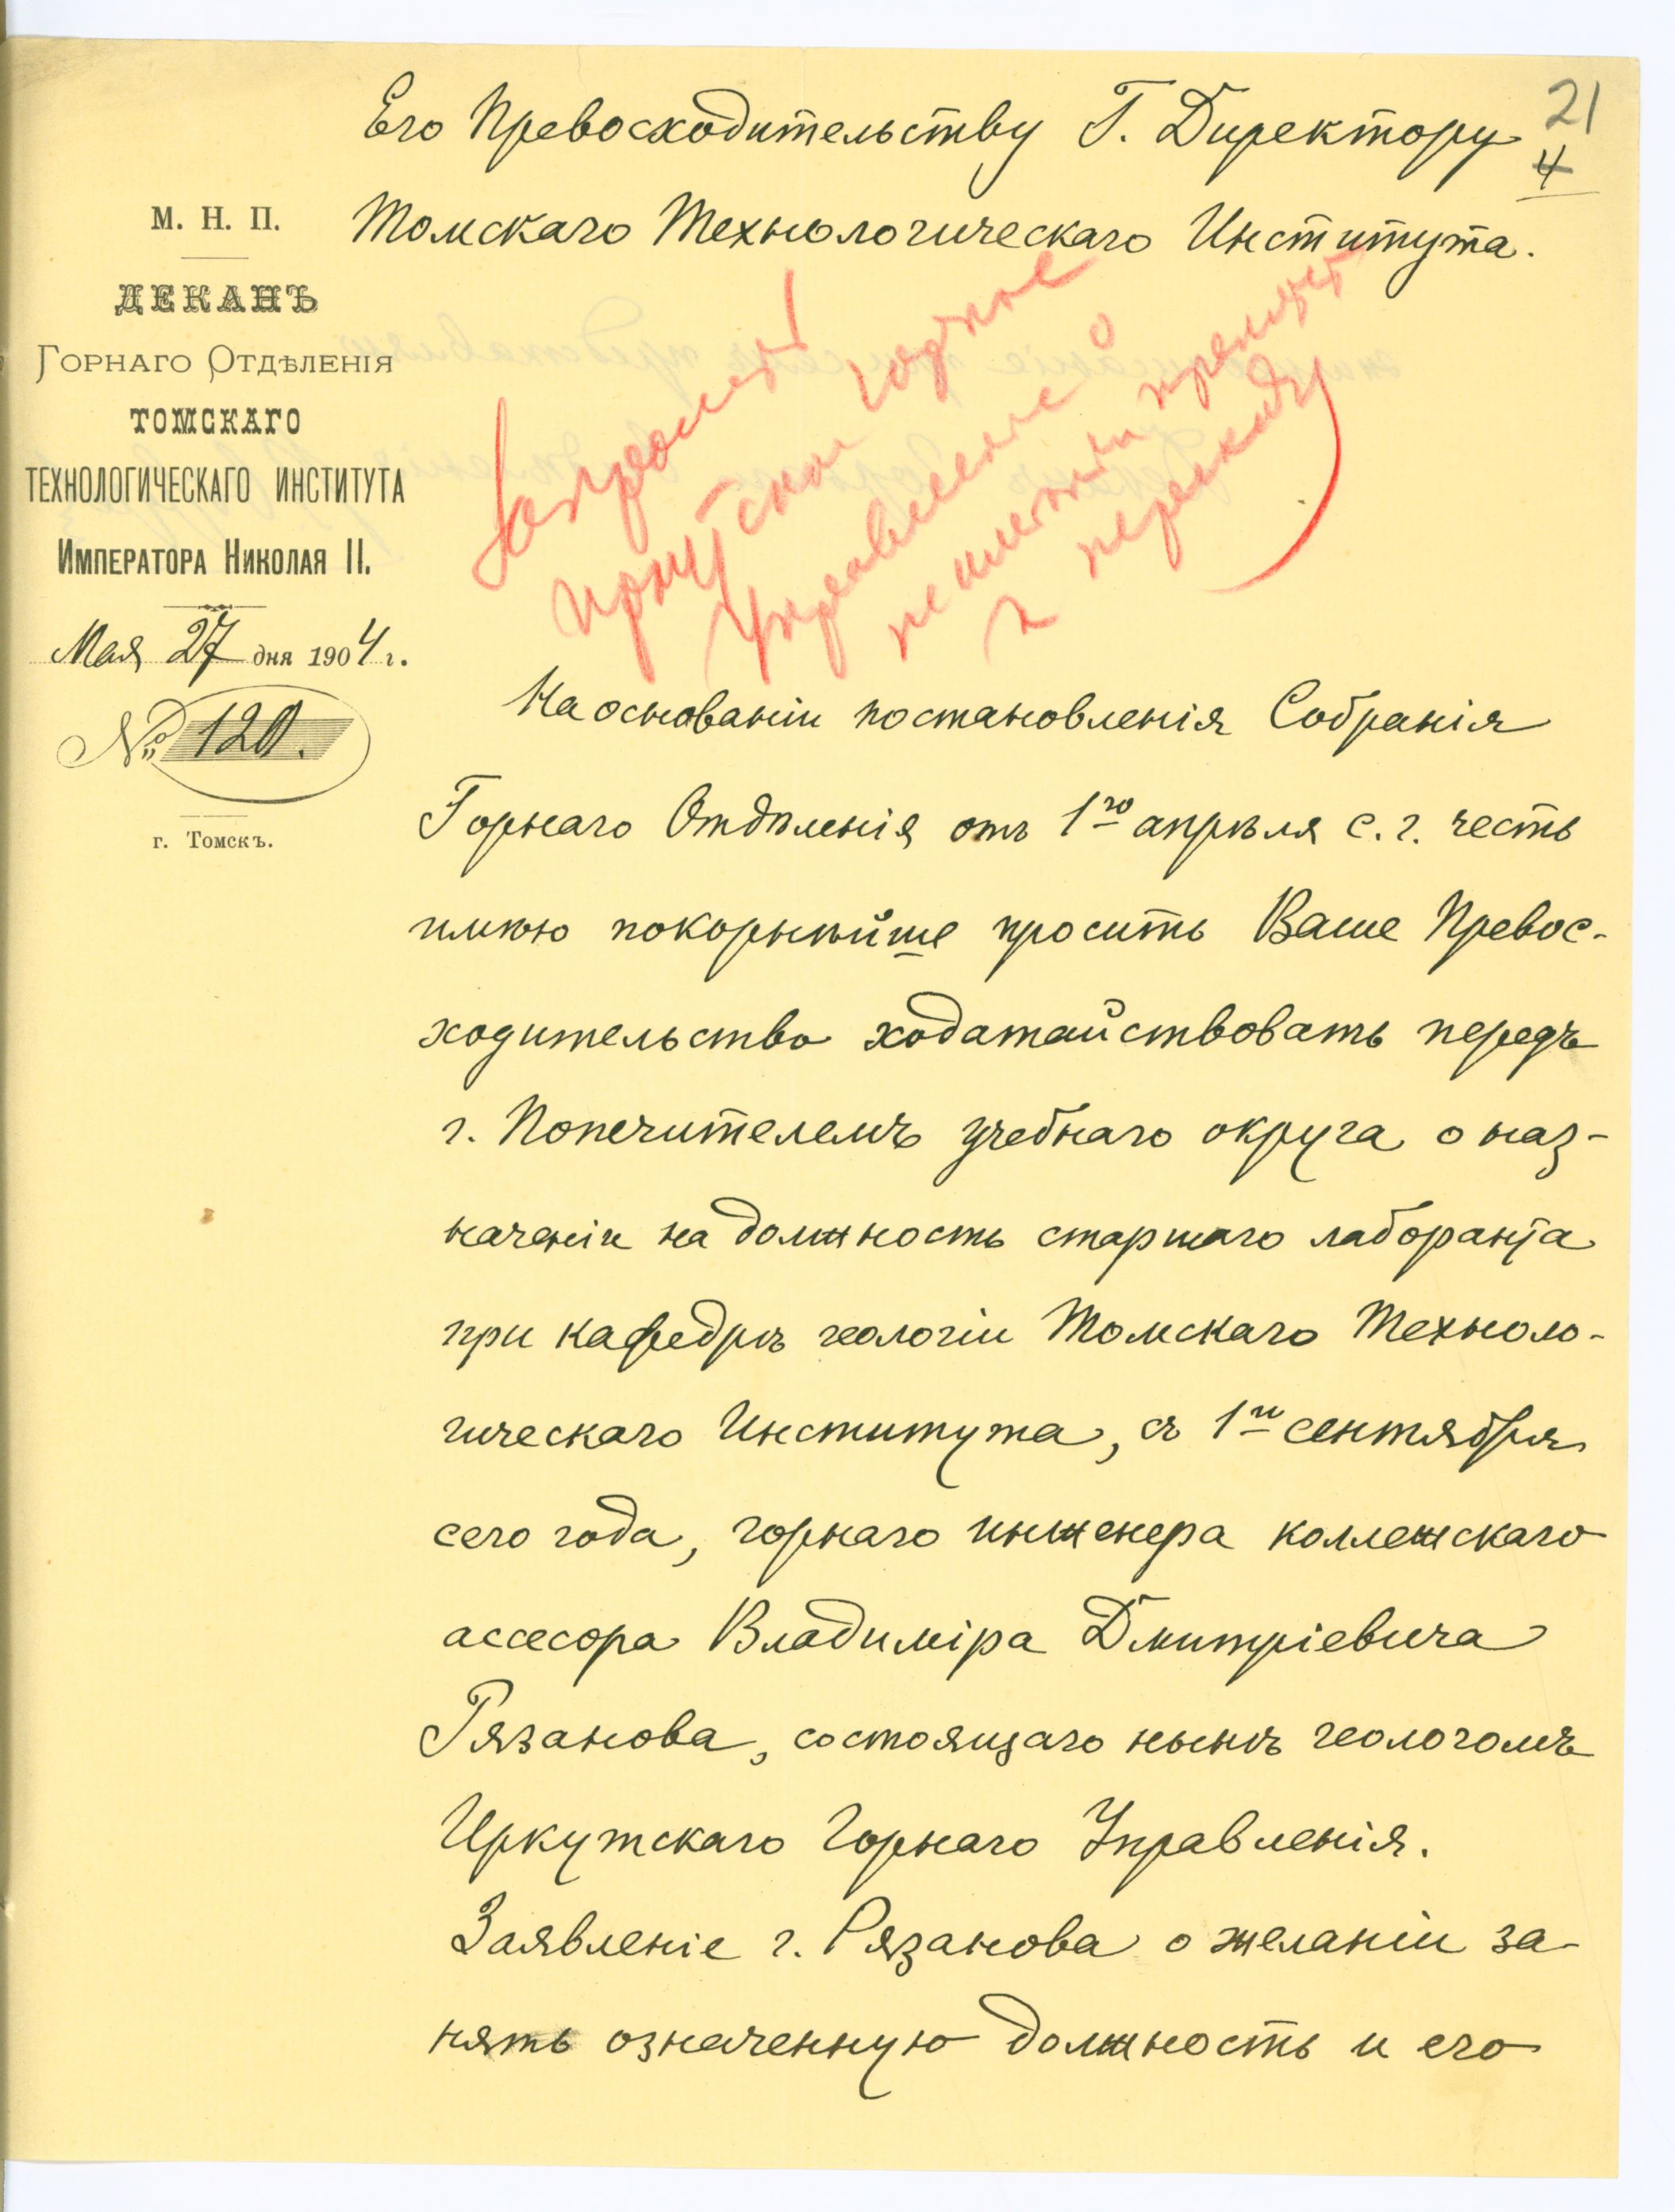 Его Превосходительству Г. Директору
Томскаго Технологическаго Института.
21
4
М. Н. П.
ДЕКАНЪ
ГОРНАГО ОТДѢЛЕНІЯ
ТОМСКАГО
ТЕХНОЛОГИЧЕСКАГО ИНСТИТУТА
ИМПЕРАТОРА НИКОЛАЯ II.
Мая 27 дня 1904 г.
№ 120.
г. Томскъ.
Запросить
Иркутское Горное
Управленіе о
препятствій
к
На основаніи постановленія Собранія
Горнаго Отдѣленія отъ 1го апрѣля с. г. честь
имѣю покорнѣйше просить Ваше Превос-
ходительство ходатайствовать передъ
г. Попечителемъ учебнаго округа о наз-
наченіи на должность старшаго лаборанта
при кафедрѣ геологіи Томскаго Техноло-
гическаго Института, съ 1го сентября
сего года, горнаго инженера коллежскаго
ассесора Владиміра Дмитріевича
Рязанова, состоящаго нынѣ геологомъ
Иркутскаго Горнаго Управленія.
Заявленіе г. Рязанова о желаніи за-
нять означенную должность и его